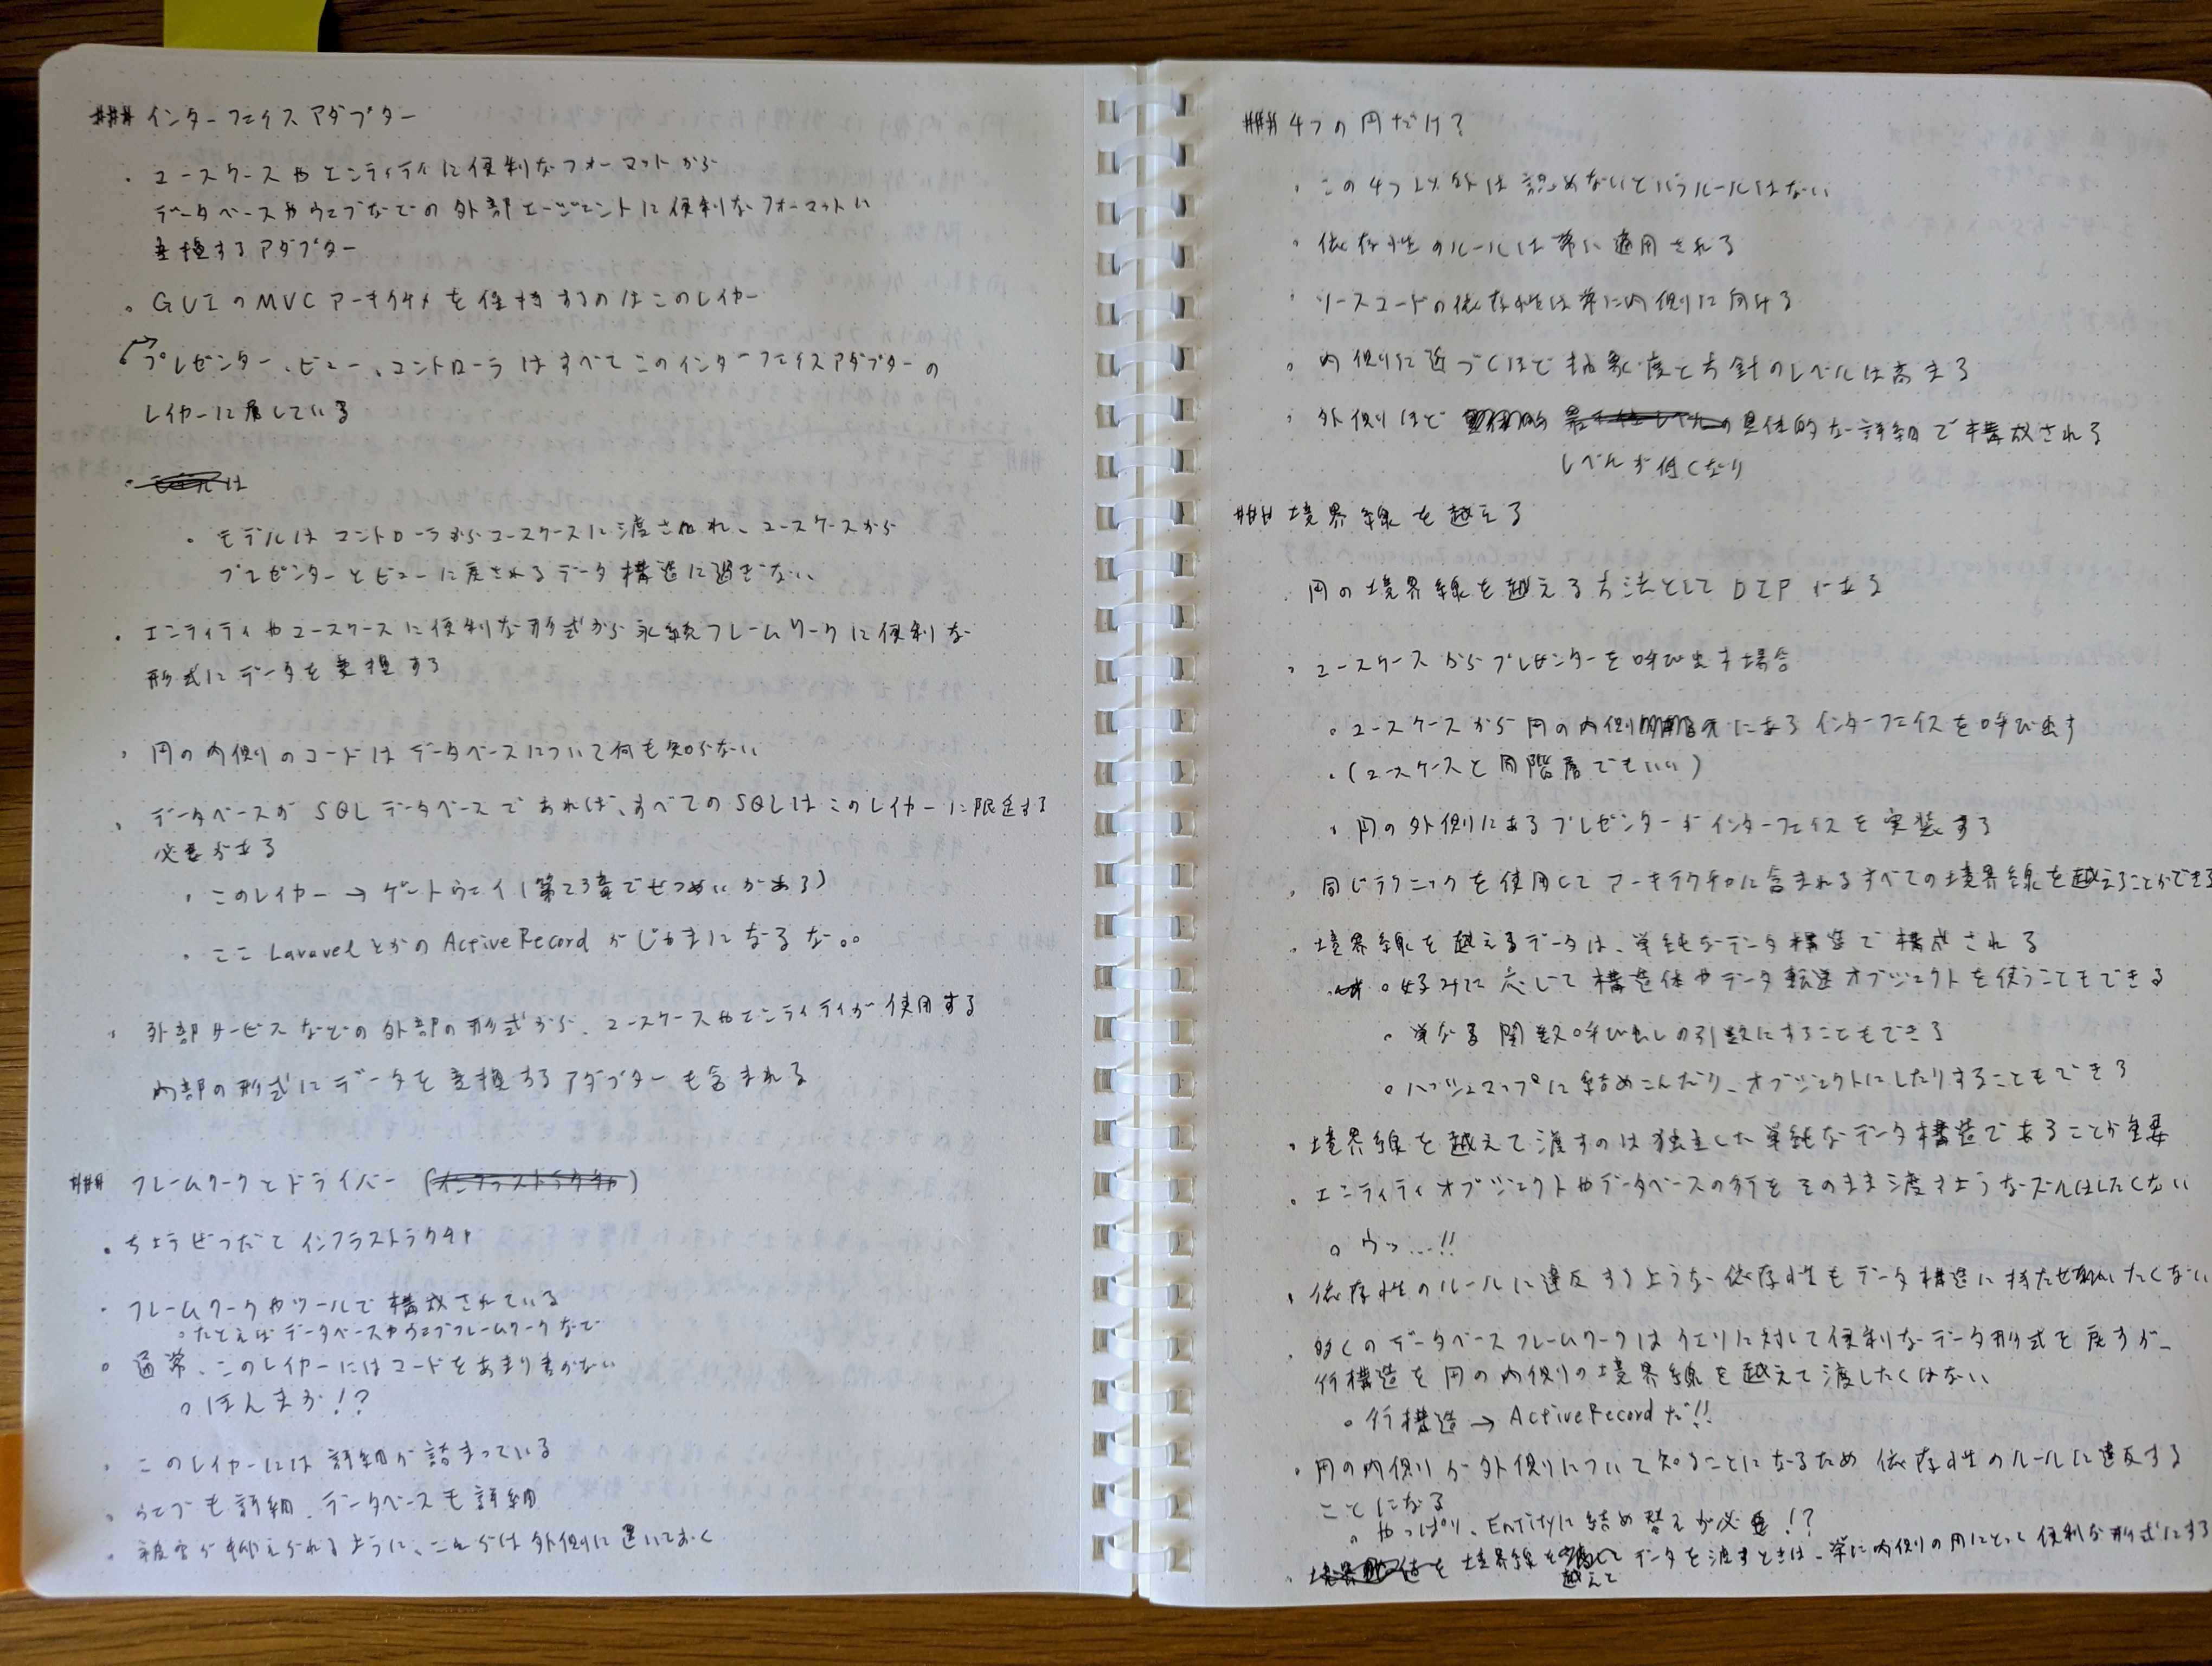 ### インターフェイスアダプター
・ユースケースやエンティティに便利なフォーマットから
データベースやウェブなどの外部エージェントに便利なフォーマットに
変換するアダプター
・GUIのMVCアーキテクチャを保持するのはこのレイヤー
プレゼンター、ビュー、コントローラはすべてこのインターフェイスアダプターの
レイヤーに属している
・モデルはコントローラからユースケースに渡され、ユースケースから
プレゼンターとビューに戻されるデータ構造に過ぎない
・エンティティやユースケースに便利な形式から永続フレームワークに便利な
形式にデータを変換する
・円の内側のコードはデータベースについて何も知らない
・データベースがSQLデータベースであれば、すべてのSQLはこのレイヤーに限定する
必要がある
・このレイヤー → ゲートウェイ(第23章でせつめいがある)
・ここLaravelとかのActiveRecordがじゃまになるな。。
・外部サービスなどの外部の形式から、ユースケースやエンティティが使用する
内部の形式にデータを変換するアダプターも含まれる
### フレームワークとドライバー (インフラストラクチャ)
・ちょうぜつだとインフラストラクチャ
・フレームワークやツールで構成されている
。たとえばデータベースやウェブフレームワークなど
。通常、このレイヤーにはコードをあまり書かない
。ほんまか!?
・このレイヤーには詳細が詰まっている
・ウェブも詳細、データベースも詳細
・被害が抑えられるように、これらは外側に置いておく
### 4つの円だけ?
・この4つ以外は認めないというルールはない
・依存性のルールは常に適用される
・ソースコードの依存性は常に内側に向ける
。内側に近づくほど抽象度と方針のレベルは高まる
・外側ほど 最下位レベルの具体的な詳細で構成される
レベルが低くなり
### 境界線を越える
・円の境界線を越える方法としてDIPがある
・ユースケースからプレゼンターを呼び出す場合
。ユースケースから円の内側にあるインターフェイスを呼び出す
・(ユースケースと同階層でもいい)
・円の外側にあるプレゼンターがインターフェイスを実装する
・同じテクニックを使用してアーキテクチャに含まれるすべての境界線を越えることができる
・境界線を越えるデータは、単純なデータ構造で構成される
。好みに応じて構造体やデータ転送オブジェクトを使うこともできる
。単なる関数呼び出しの引数にすることもできる
。ハッシュマップに詰めこんだり、オブジェクトにしたりすることもできる
・境界線を越えて渡すのは独立した単純なデータ構造であることが重要
・エンティティオブジェクトやデータベースの行をそのまま渡すようなズルはしたくない
。ウッ...!!
・依存性のルールに違反するような依存性もデータ構造に持たせたくない
・多くのデータベースフレームワークはクエリに対して便利なデータ形式を戻すが、
行構造を円の内側の境界線を越えて渡したくはない
。行構造 → ActiveRecordだ!!
・円の内側が外側について知ることになるため依存性のルールに違反する
ことになる
。やっぱり、Entityに詰め替えが必要!?
・境界線を越えてデータを渡すときは、常に内側の円にとって便利な形式にする